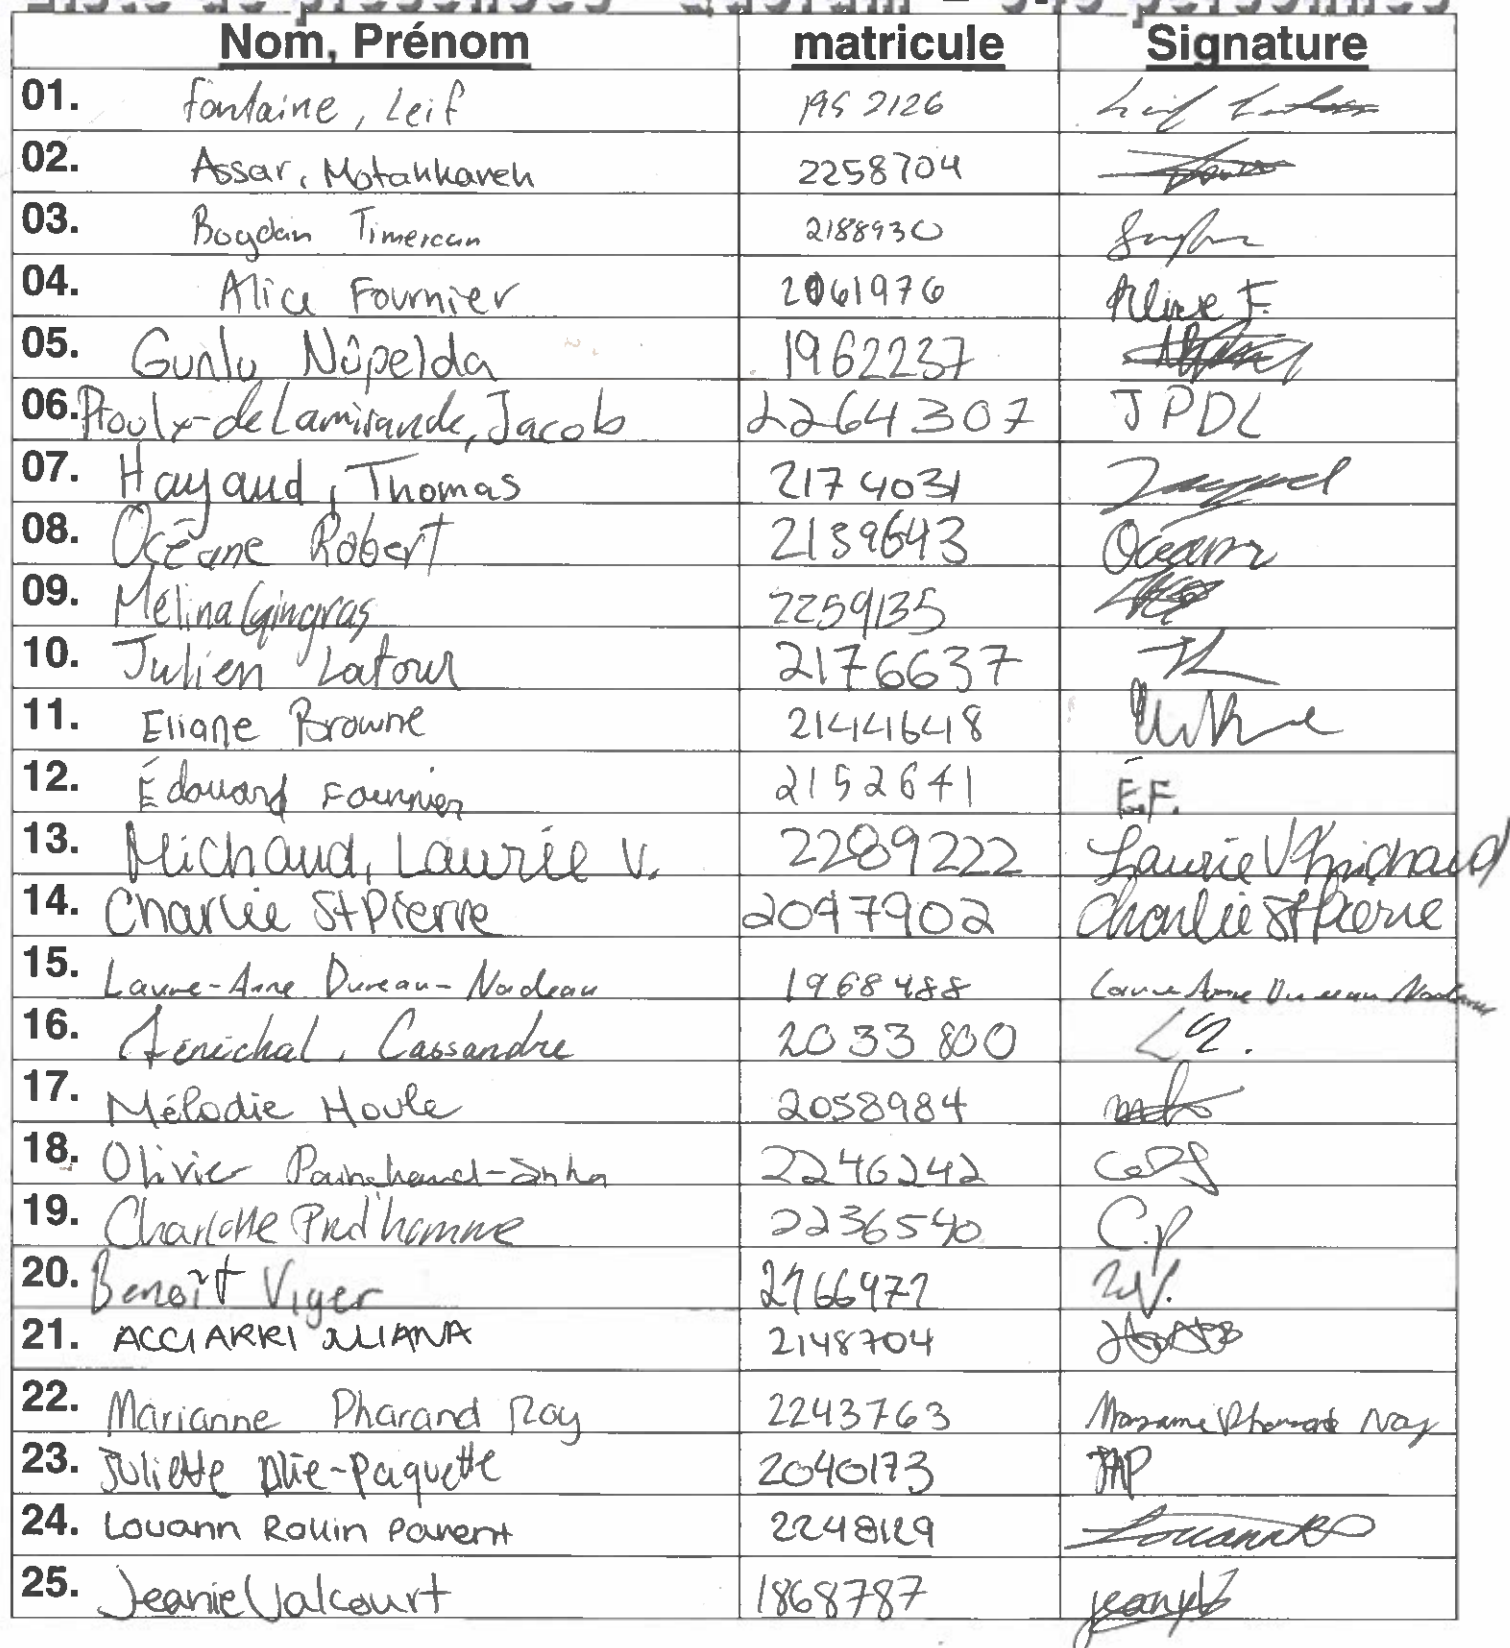 Liste de présences - Quorum = 540 personnes
Nom, Prénom matricule Signature
01. Fontaine, Leif 195 2126
02. Assar, Motahhareh 2258704
03. Bogdan Timercan 2188930
04. Alice Fournier 2061976 Alice F.
05. Gunlu Nûpelda 1962237
06. Proulx-de Lamirande, Jacob 2264307 JPDL
07. Hayaud, Thomas 2174031
08. Océane Robert 2139643 Océane
09. Mélina Gingras 2259135
10. Julien Latour 2176637 JL
11. Eliane Browne 2144648
12. Édouard Fournier 2152641 É.F.
13. Michaud, Laurie V. 2289222 Laurie V Michaud
14. Charlie St Pierre 2047902 Charlie St Pierre
15. Laure-Anne Dureau-Nadeau 1968488 Laure Anne Dureau Nadeau
16. Sénéchal, Cassandre 2033800
17. Mélodie Houle 2058984
18. Olivier Painchaud- 2246242
19. Charlotte Prud'homme 2236540 C.P
20. Benoît Viger
21. ACCIARRI JULIANA 2148704
22. Marianne Pharand Roy 2243763 Marianne Pharand Roy
23. Juliette Alie-Paquette 2040173 JAP
24. Louann Rollin Parent Louann
25. Jeanie Valcourt 1868787